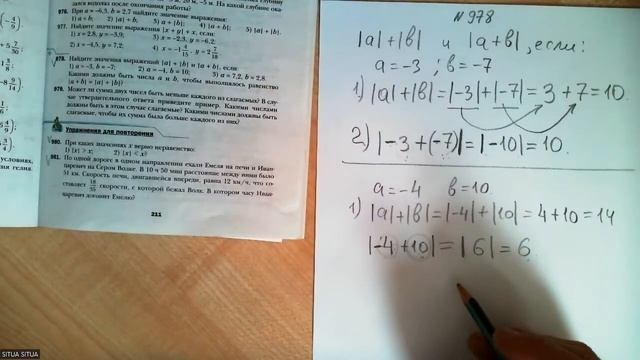 976. При a = −6,3, b = 2,7 найдите значение выражения:
1) a + b; 2) |a| + b; 3) a + |b|; 4) |a| + |b|; 5) |a + b|.
977. Найдите значение выражения |x + y| + x, если:
1) x = 2,8, y = −3,9; 3) x = −2,3, y = −6,2;
2) x = −4,5, y = 7,2;
978. Найдите значения выражений |a| + |b| и |a + b|, если:
1) a = −3, b = −7; 2) a = −4, b = 10; 3) a = 7,2, b = 2,8.
Какими должны быть числа a и b, чтобы выполнялось равенство
|a + b| = |a| + |b|?
979. Может ли сумма двух чисел быть меньше каждого из слагаемых? В слу-
чае утвердительного ответа приведите пример. Какими числами
должны быть в этом случае слагаемые? Какими числами должны быть
слагаемые, чтобы их сумма была больше каждого из них?
Упражнения для повторения
980. При каких значениях x верно неравенство:
1) |x| > x; 2) |x| < x?
981. По одной дороге в одном направлении ехали Емеля на печи и Иван-
царевич на Сером Волке. В 10 ч 50 мин расстояние между ними было
51 км. Скорость печи, двигавшейся впереди, равна 12 км/ч, что со-
ставляет 18/55 скорости, с которой бежал Волк. В котором часу Иван-
царевич догонит Емелю?
211
N 978
|a|+|b| и |a+b|, если:
a=-3; b=-7
1) |a|+|b|=|-3|+|-7|=3+7=10
2) |-3+(-7)|=|-10|=10.
a=-4 b=10
1) |a|+|b|=|-4|+|10|=4+10=14
|-4+10|=|6|=6
SITUA SITUA